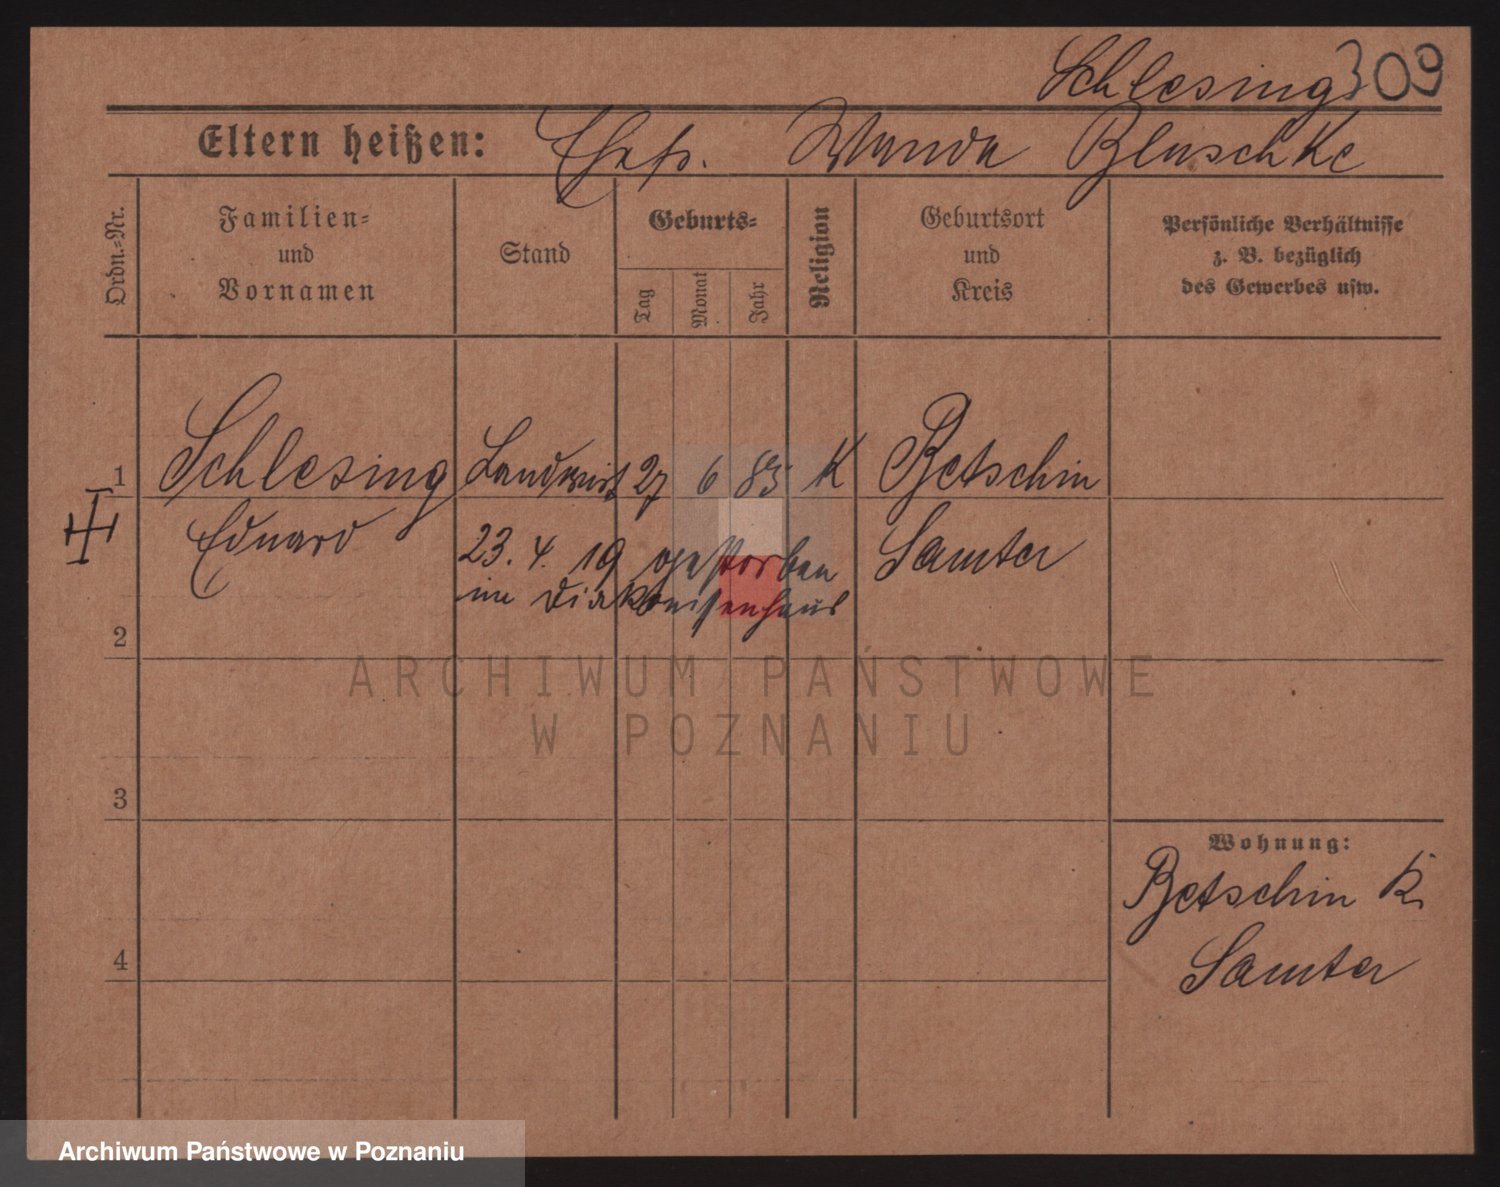 Schlesing 309
Eltern heißen: Ehefr. Wanda Bluschke
Ordn.=Nr.
Familien=
und
Vornamen
Stand
Geburts=
Tag
Monat
Jahr
Religion
Geburtsort
und
Kreis
Persönliche Verhältnisse
z. B. bezüglich
des Gewerbes usw.
1 Schlesing Landwirt 27 6 83 K Betschin
Eduard 23. 4. 19 gestorben Samter
im Diakonissenhaus
2
ARCHIWUM PAŃSTWOWE
W POZNANIU
3
Wohnung:
Betschin K.
4
Samter
Archiwum Państwowe w Poznaniu